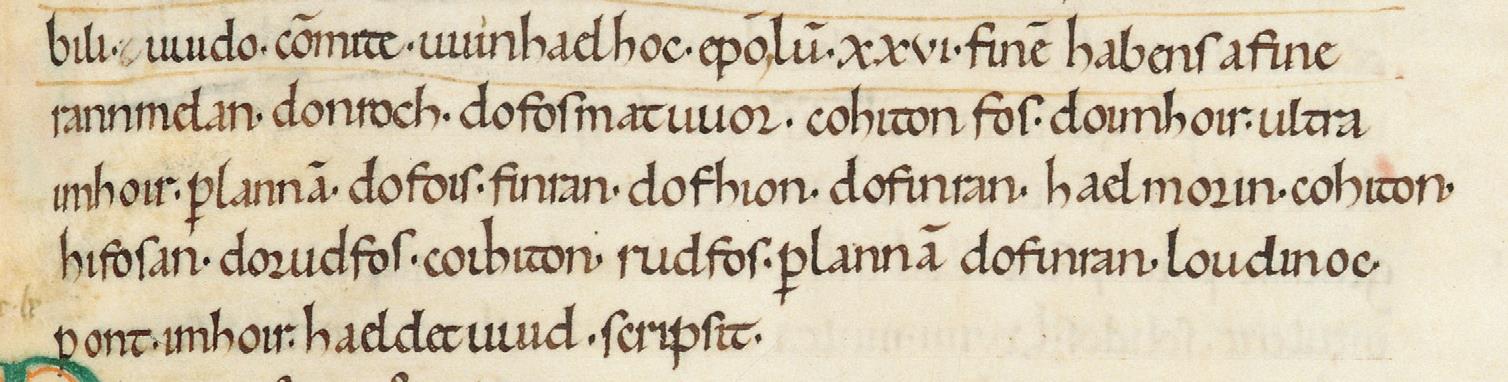 bili· uuido· cōmite · uuinhaelhoc· epō lū· xxvi· finē habens a fine
rannmelan· donroch· dofosmatuuor · cohiton fos· doimhoir· ultra
imhoir· ꝑlannā· dofois· finran· dofhion· dofinran· haelmorin· cohiton·
hifosan· dorudfos · coihiton· rudfos· ꝑlannā dofinran· loudinoc·
pont· imhoir· haeldetuuid · scripsit·